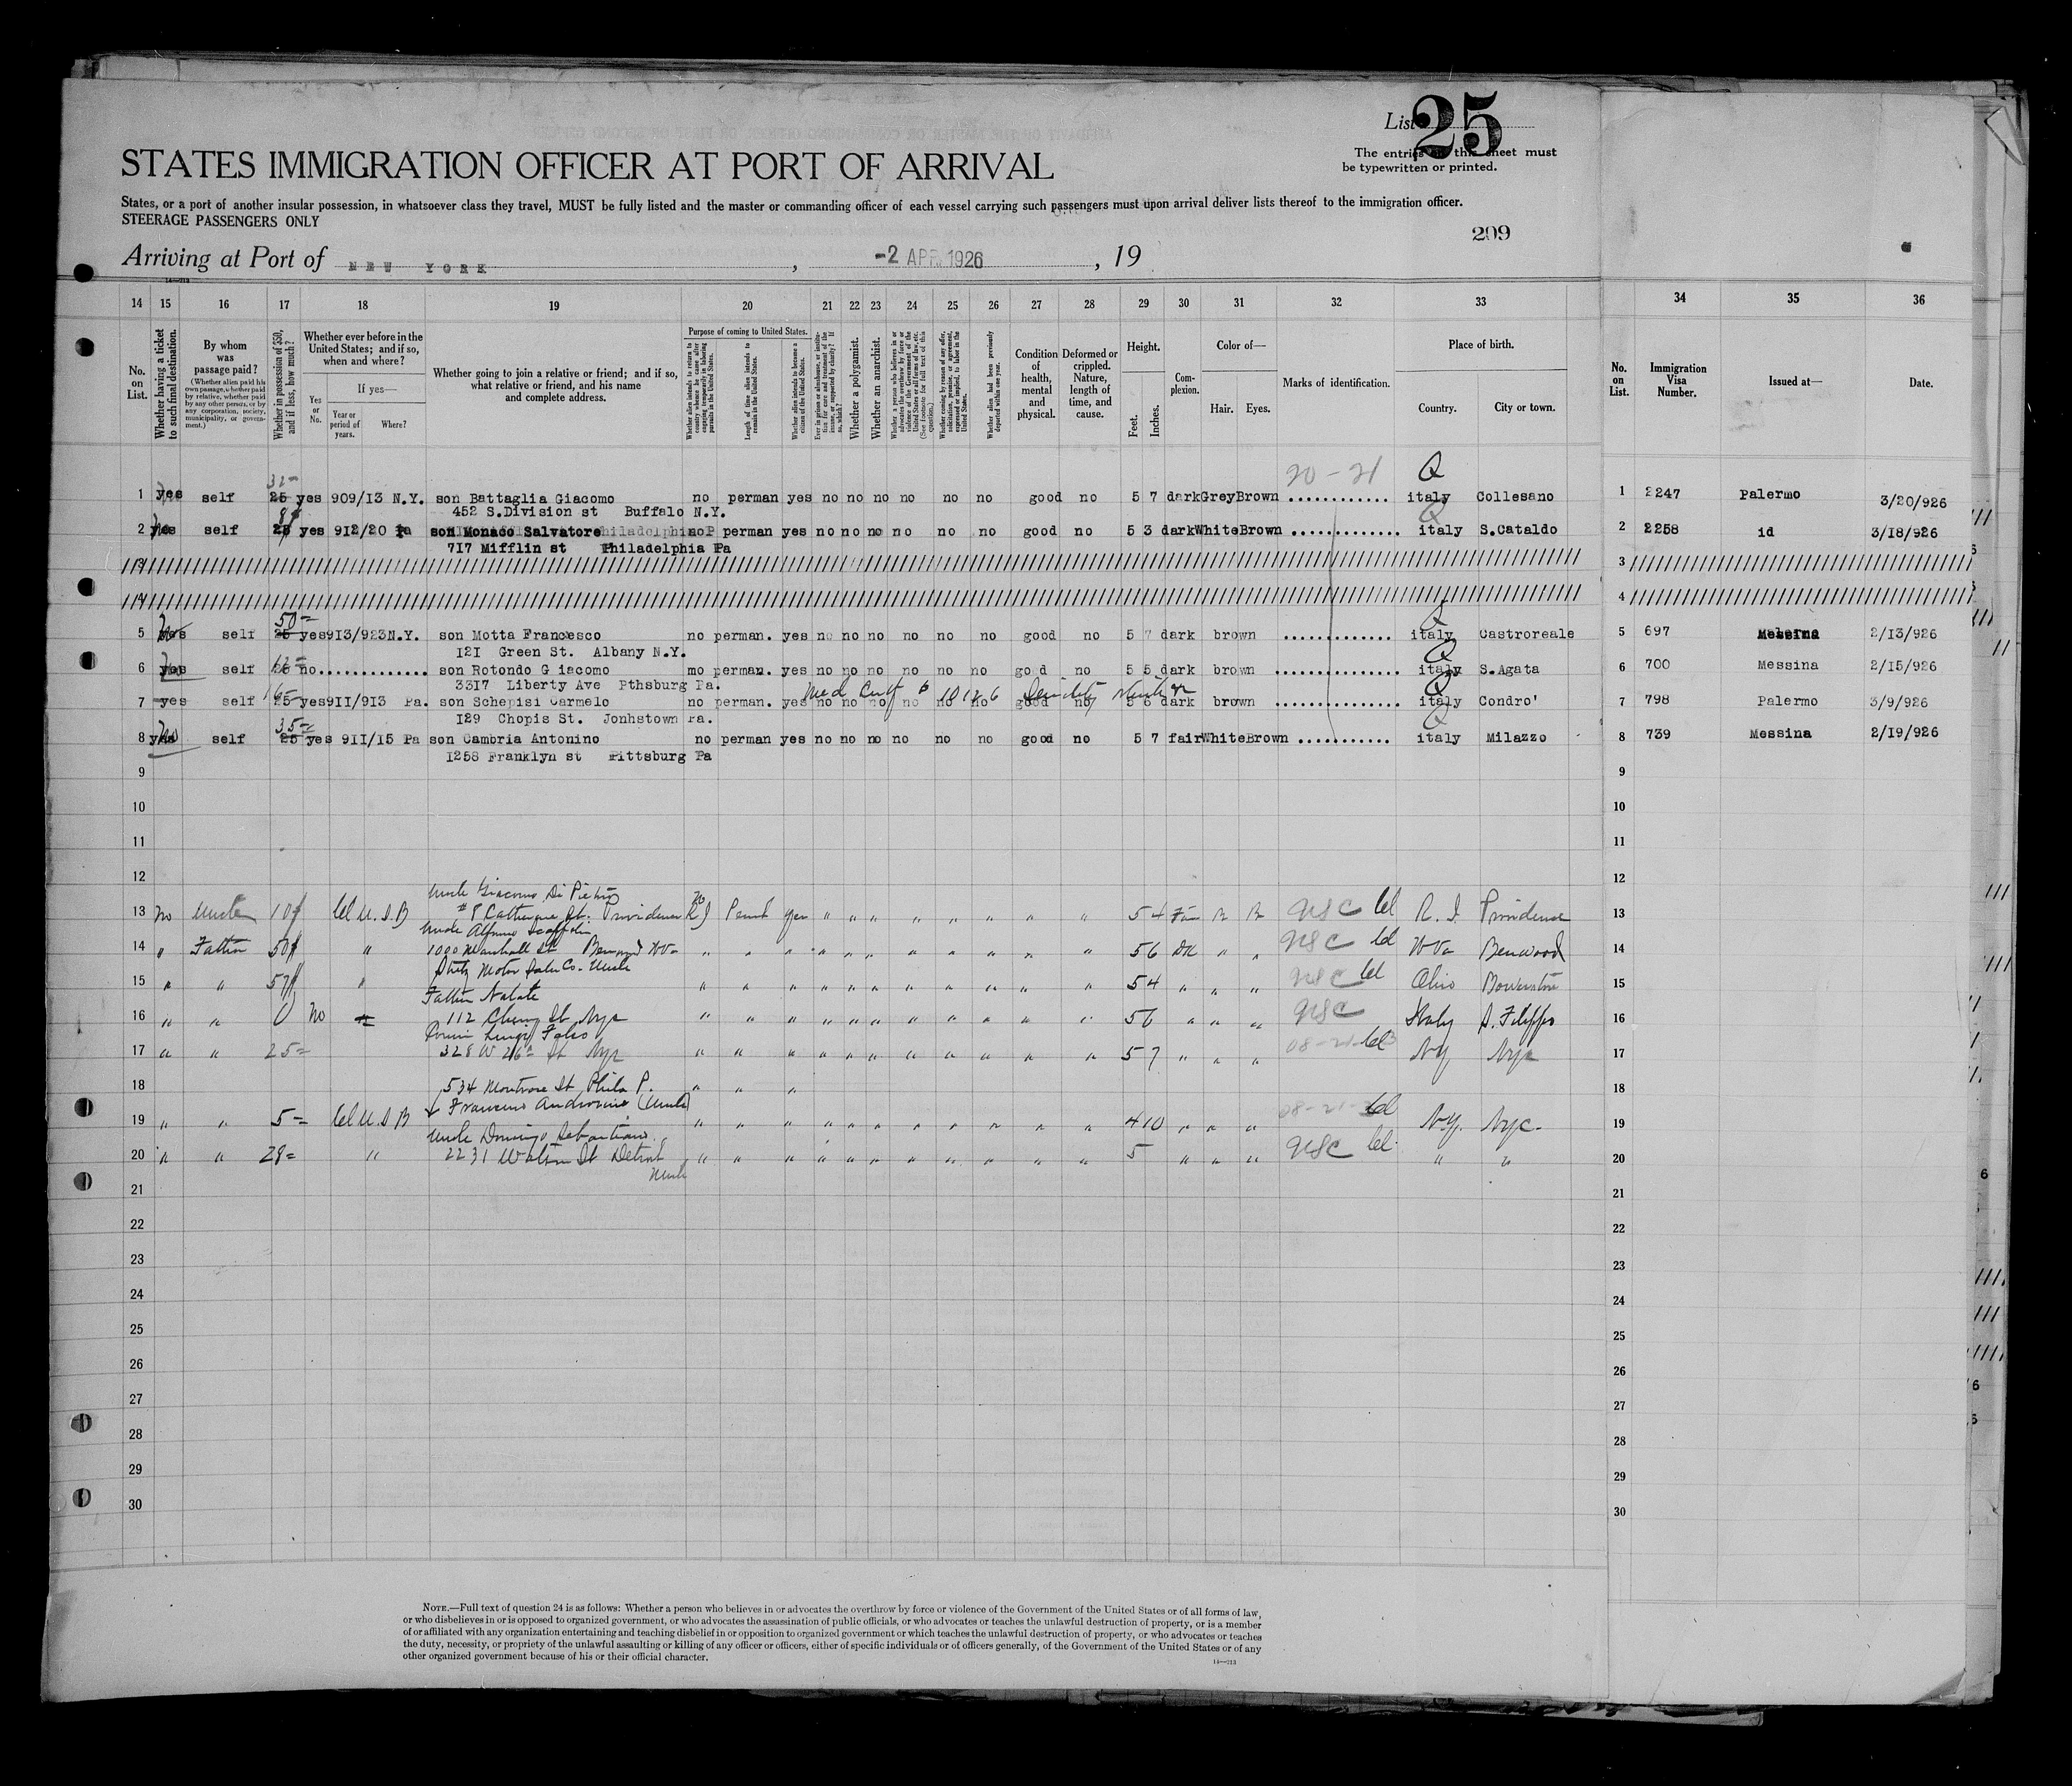 List 25
The entries on this sheet must
be typewritten or printed.
STATES IMMIGRATION OFFICER AT PORT OF ARRIVAL
States, or a port of another insular possession, in whatsoever class they travel, MUST be fully listed and the master or commanding officer of each vessel carrying such passengers must upon arrival deliver lists thereof to the immigration officer.
STEERAGE PASSENGERS ONLY
209
Arriving at Port of NEW YORK, -2 APR. 1926, 19
14 15 16 17 18 19 20 21 22 23 24 25 26 27 28 29 30 31 32 33 34 35 36
No. on List.
Whether having a ticket to such final destination.
By whom was passage paid?
(Whether alien paid his own passage, whether paid by relative, whether paid by any other person, or by any corporation, society, municipality, or government.)
Whether in possession of $50, and if less, how much?
Whether ever before in the United States; and if so, when and where?
If yes—
Yes or No.
Year or period of years.
Where?
Whether going to join a relative or friend; and if so, what relative or friend, and his name and complete address.
Purpose of coming to United States.
Whether alien intends to return to country whence he came after engaging temporarily in laboring pursuits in the United States.
Length of time alien intends to remain in the United States.
Whether alien intends to become a citizen of the United States.
Whether a polygamist.
Whether an anarchist.
Whether alien had been previously deported within one year.
Condition of health, mental and physical.
Deformed or crippled. Nature, length of time, and cause.
Height.
Feet. Inches.
Complexion.
Color of—
Hair. Eyes.
Marks of identification.
Place of birth.
Country. City or town.
No. on List.
Immigration Visa Number.
Issued at—
Date.
20-21 Q
32-
1 yes self 25 yes 909/13 N.Y. son Battaglia Giacomo no perman yes no no no no no no good no 5 7 dark Grey Brown ............ italy Collesano 1 2247 Palermo 3/20/926
452 S.Division st Buffalo N.Y.
2 yes self 25 yes 912/20 Pa son Monaco Salvatore no perman yes no no no no no no good no 5 3 dark White Brown ............. italy S.Cataldo 2 2258 id 3/18/926
717 Mifflin st Philadelphia Pa
3 3
4 4
50-
5 self 25 yes 913/923 N.Y. son Motta Francesco no perman. yes no no no no no no good no 5 7 dark brown ............. italy Castroreale 5 697 Messina 2/13/926
121 Green St. Albany N.Y.
6 yes self no............. son Rotondo Giacomo mo perman. yes no no no no no no good no 5 5 dark brown ............... italy S.Agata 6 700 Messina 2/15/926
3317 Liberty Ave Pthsburg Pa.
7 yes self 25 yes 911/913 Pa. son Schepisi Carmelo no perman. yes no no no no no no good no 5 6 dark brown ............... italy Condro' 7 798 Palermo 3/9/926
129 Chopis St. Jonhstown Pa.
35-
8 yes self 25 yes 911/15 Pa son Cambria Antonino no perman yes no no no no no no good no 5 7 fair White Brown ............ italy Milazzo 8 739 Messina 2/19/926
1258 Franklyn st Pittsburg Pa
9 9
10 10
11 11
12 12
Uncle Giacomo Di Pietro
13 no Uncle 10 U.S.B # 8 Catherine St. Providence R I Permt yes " " " " " " " " 5 4 B B USC R. I. Providence 13
14 " Father 50 " 1000 Marshall St Benwood W Va " " " " " " " " " " " 5 6 DK " " USC W Va Benwood 14
Stutz Motor Sales Co. Uncle
15 " " 57 " " " " " " " " " " " " " 5 4 " " " USC Ohio 15
Father Natale
16 " " 0 No 112 Cherry St Nyc " " " " " " " " " " " 5 6 " " " USC Italy S. Filippo 16
Cousin Luigi Falco
17 " " 25- 328 W 26th St Nyc " " " " " " " " " " " 5 7 " " " NY Nyc 17
18 534 Montrose St Phila P. " " " 18
19 " " 5- U.S.B Francesco (Uncle) " " " " " " " " " " " 4 10 " " " 08-21- N.Y. Nyc- 19
Uncle Domingo Sebastiano
20 " " 28- " 2231 Watson St Detroit " " " " " " " " " " " 5 " " " USC " " 20
Uncle
21 21
22 22
23 23
24 24
25 25
26 26
27 27
28 28
29 29
30 30
NOTE.—Full text of question 24 is as follows: Whether a person who believes in or advocates the overthrow by force or violence of the Government of the United States or of all forms of law,
or who disbelieves in or is opposed to organized government, or who advocates the assassination of public officials, or who advocates or teaches the unlawful destruction of property, or is a member
of or affiliated with any organization entertaining and teaching disbelief in or opposition to organized government or which teaches the unlawful destruction of property, or who advocates or teaches
the duty, necessity, or propriety of the unlawful assaulting or killing of any officer or officers, either of specific individuals or of officers generally, of the Government of the United States or of any
other organized government because of his or their official character.
14—213